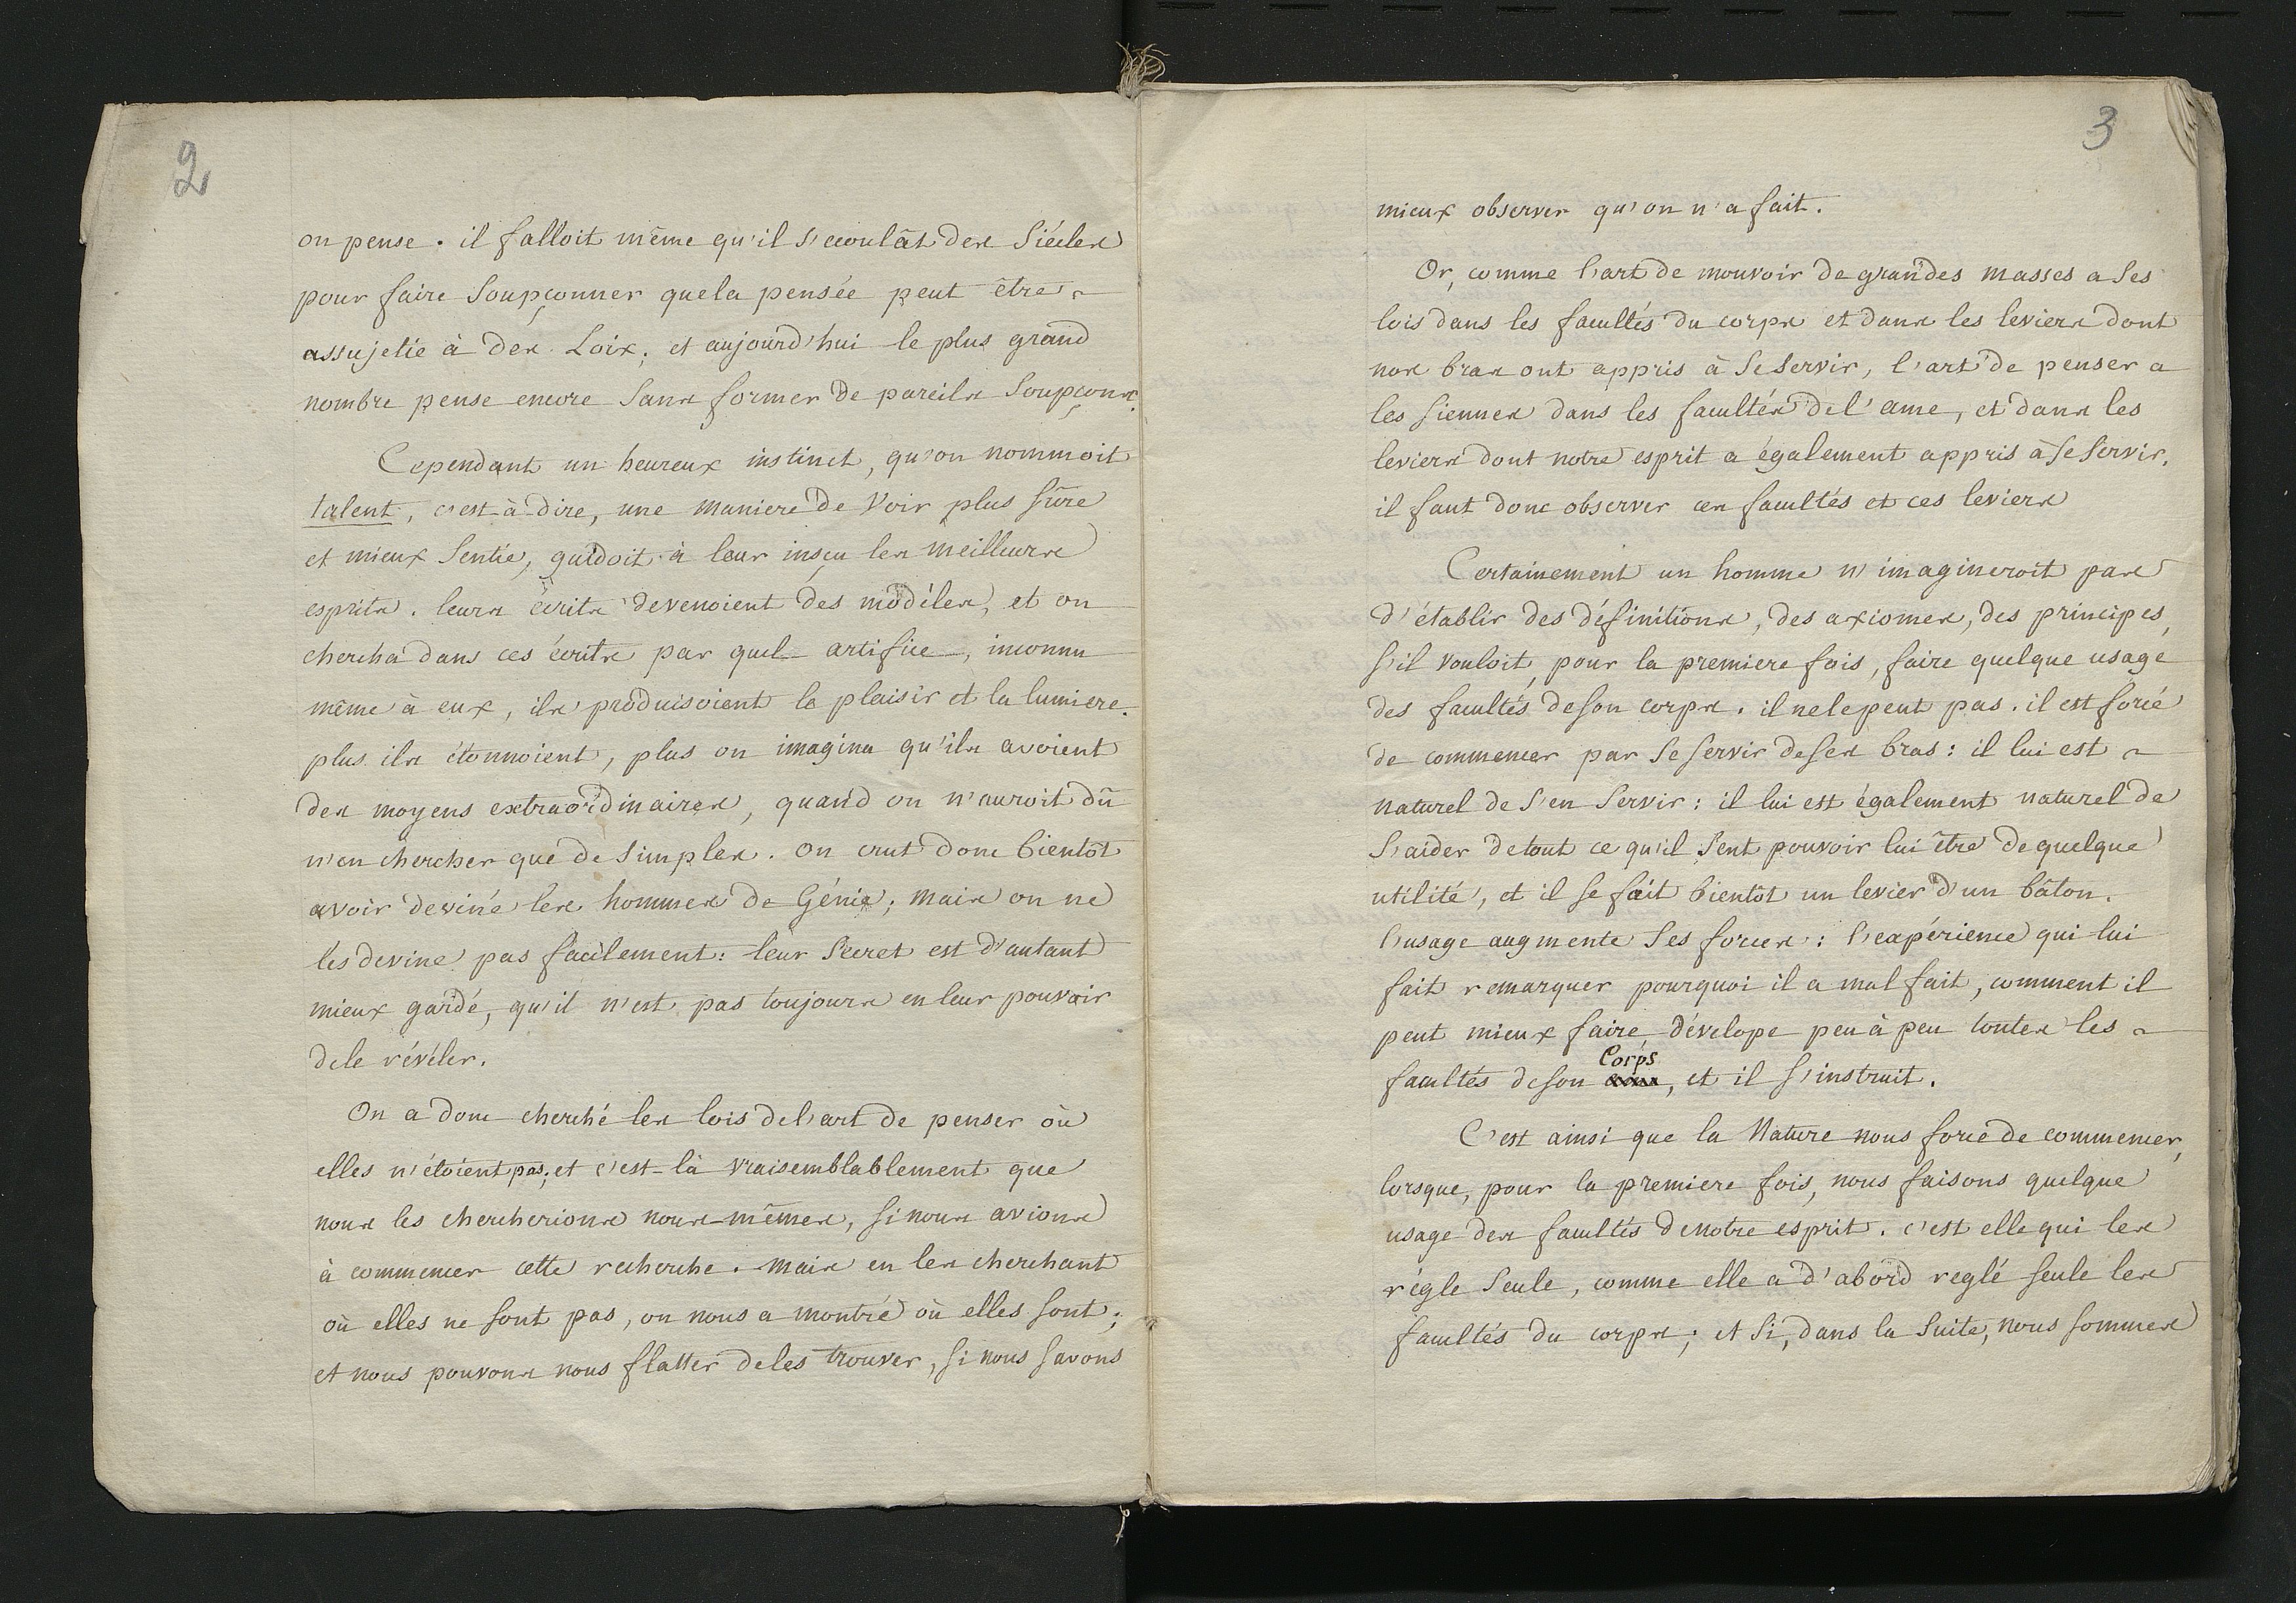 2
on pense. il falloit même qu'il s'écoulât des siécles
pour faire soupçonner que la pensée peut être
assujetie à des Loix; et aujourd'hui le plus grand
nombre pense encore sans former de pareils soupçons.
Cependant un heureux instinct, qu'on nommoit
talent, c'est-à-dire, une maniere de voir plus sûre
et mieux sentie, guidoit à leur insçu les meilleurs
esprits. leurs écrits devenoient des modéles, et on
chercha dans ces écrits par quel artifice, inconnu
même à eux, ils produisoient le plaisir et la lumiere.
plus ils étonnoient, plus on imagina qu'ils avoient
des moyens extraordinaires, quand on n'auroit dû
n'en chercher que de simples. On crut donc bientôt
avoir deviné les hommes de Génie; mais on ne
les devine pas facilement: leur secret est d'autant
mieux gardé, qu'il n'est pas toujours en leur pouvoir
de le révéler.
On a donc cherché les lois de l'art de penser où
elles n'étoient pas; et c'est-là vraisemblablement que
nous les chercherions nous-mêmes, si nous avions
à commencer cette recherche. Mais en les cherchant
où elles ne sont pas, on nous a montré où elles sont;
et nous pouvons nous flatter de les trouver, si nous savons
3
mieux observer qu'on n'a fait.
Or, comme l'art de mouvoir de grandes masses a ses
lois dans les facultés du corps et dans les leviers dont
nos bras ont appris à se servir, l'art de penser a
les siennes dans les facultés de l'ame, et dans les
leviers dont notre esprit a également appris à se servir.
il faut donc observer ces facultés et ces leviers
Certainement un homme n'imagineroit pas
d'établir des définitions, des axiomes, des principes,
s'il vouloit, pour la premiere fois, faire quelque usage
des facultés de son corps. il ne le peut pas. il est forcé
de commencer par se servir de ses bras: il lui est
naturel de s'en servir: il lui est également naturel de
s'aider de tout ce qu'il sent pouvoir lui être de quelque
utilité, et il se fait bientôt un levier d'un bâton.
l'usage augmente ses forces: l'expérience qui lui
fait remarquer pourquoi il a mal fait, comment il
peut mieux faire, dévelope peu à peu toutes les
facultés de son Corps, et il s'instruit.
C'est ainsi que la Nature nous force de commencer,
lorsque, pour la premiere fois, nous faisons quelque
usage des facultés de notre esprit. c'est elle qui les
régle seule, comme elle a d'abord reglé seule les
facultés du corps; et si, dans la suite, nous sommes